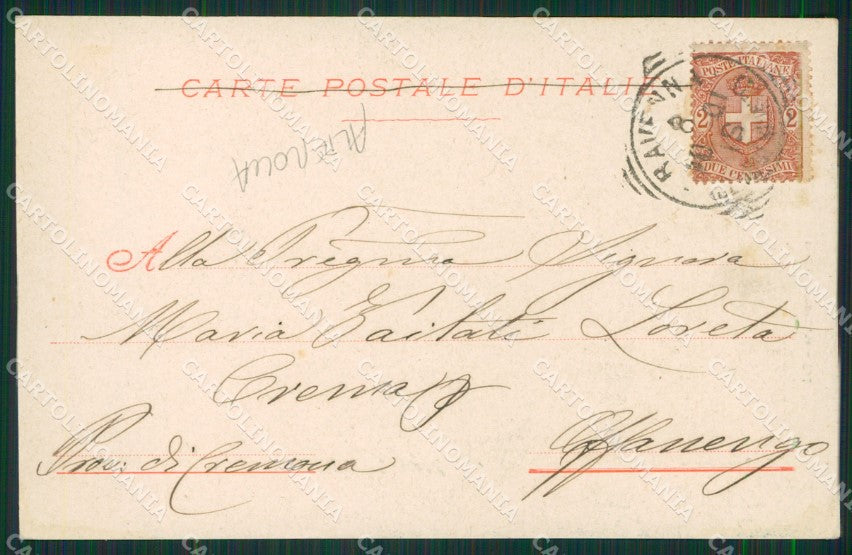 CARTE POSTALE D'ITALIE
POSTE ITALIANE
2 2
DUE CENTESIMI
RAVENNA
8
01
Alla Pregma Signora
Maria Loreta
Crema
Offanengo
Prov: di Cremona
CARTOLINOMANIA